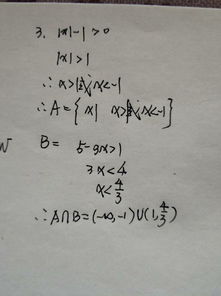 3. |x|-1>0
|x|>1
∴x>1或x<-1
∴A={x| x>1或x<-1}
B= 5-3x>1
3x<4
x<4/3
∴A∩B=(-∞,-1)∪(1,4/3)